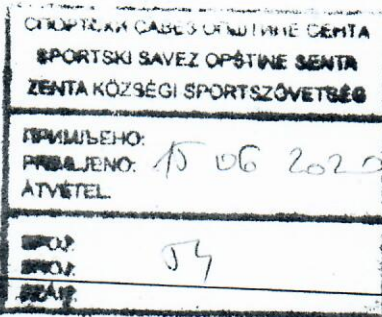 СПОРТСКИ САВЕЗ ОПШТИНЕ СЕНТА
SPORTSKI SAVEZ OPŠTINE SENTA
ZENTA KÖZSÉGI SPORTSZÖVETSÉG
ПРИМЉЕНО:
PRIMLJENO: 15 06 2020
ÁTVÉTEL
БРОЈ:
BROJ: 54
SZÁM: